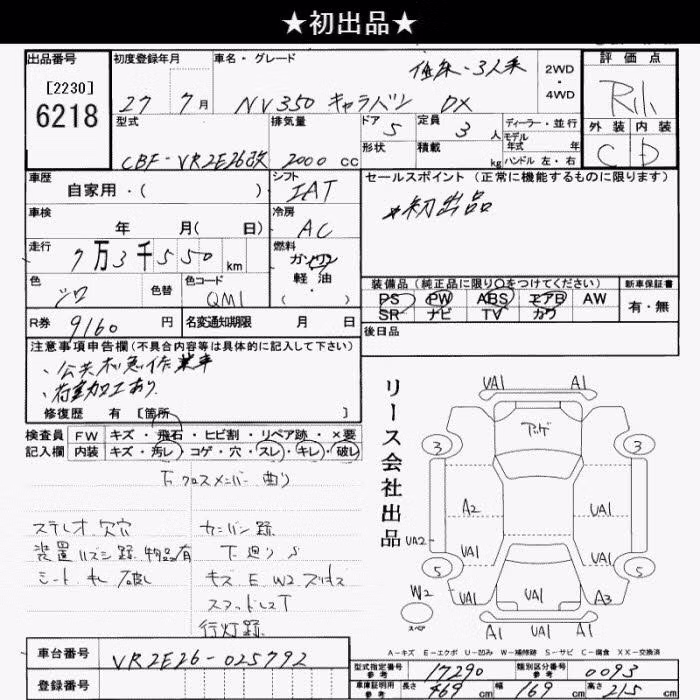 ★初出品★
出品番号
[2230]
6218
初度登録年月
27年 7月
車名・グレード
低床・3人乗
NV350 キャラバン DX
2WD
・
4WD
評価点
外装 内装
C D
型式
CBF-VR2E26改
排気量
2000 cc
ドア
5
形状
定員
3 人
積載
kg
ディーラー・並行
モデル
年式 年
ハンドル 左・右
車歴
自家用・( )
シフト
IAT
車検
年 月( 日)
冷房
AC
走行
7万3千550 km
燃料
ガソリン
軽油
・
( )
色
シロ
色替
色コード
QM1
R券
9160 円
名変通知期限 月 日
セールスポイント (正常に機能するものに限ります)
★初出品
装備品 (純正品に限り○をつけてください)
PS PW ABS エアB AW
SR ナビ TV カワ
新車保証書
有・無
後日品
注意事項申告欄(不具合内容等は具体的に記入して下さい)
・公共応急作業車
・荷室加工あり
修復歴 有 [箇所 ]
検査員
記入欄
FW キズ・飛石・ヒビ割・リペア跡・×要
内装 キズ・汚レ・コゲ・穴・スレ・キレ・破レ
下クロスメンバー 曲り
ステレオ欠穴
装置ハズシ跡 物品有
シート キレ 破レ
カンバン跡
下廻りS
キズ E W2 ズレキズ
スタッドレスT
行灯跡
車台番号
VR2E26-025792
登録番号
リース会社出品
UA1 A1
3 3
A2 UA1
UA2
UA1 UA1
5 5
W2 UA1 A3
スペア
A1 UA1 A1
A-キズ E-エクボ U-凹み W-補修跡 S-サビ C-腐食 XX-交換済
型式指定番号
参考
17290
類別区分番号
参考
0093
車庫証明用
参考
長さ 469 cm
幅 169 cm
高さ 215 cm